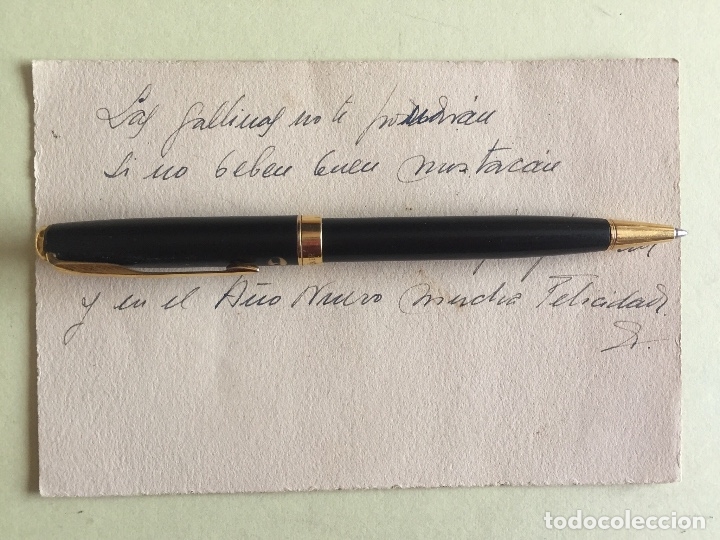 Las gallinas no te pondrán
si no beben buen mostacán
y en el Año Nuevo mucha Felicidad.
todocoleccion.net